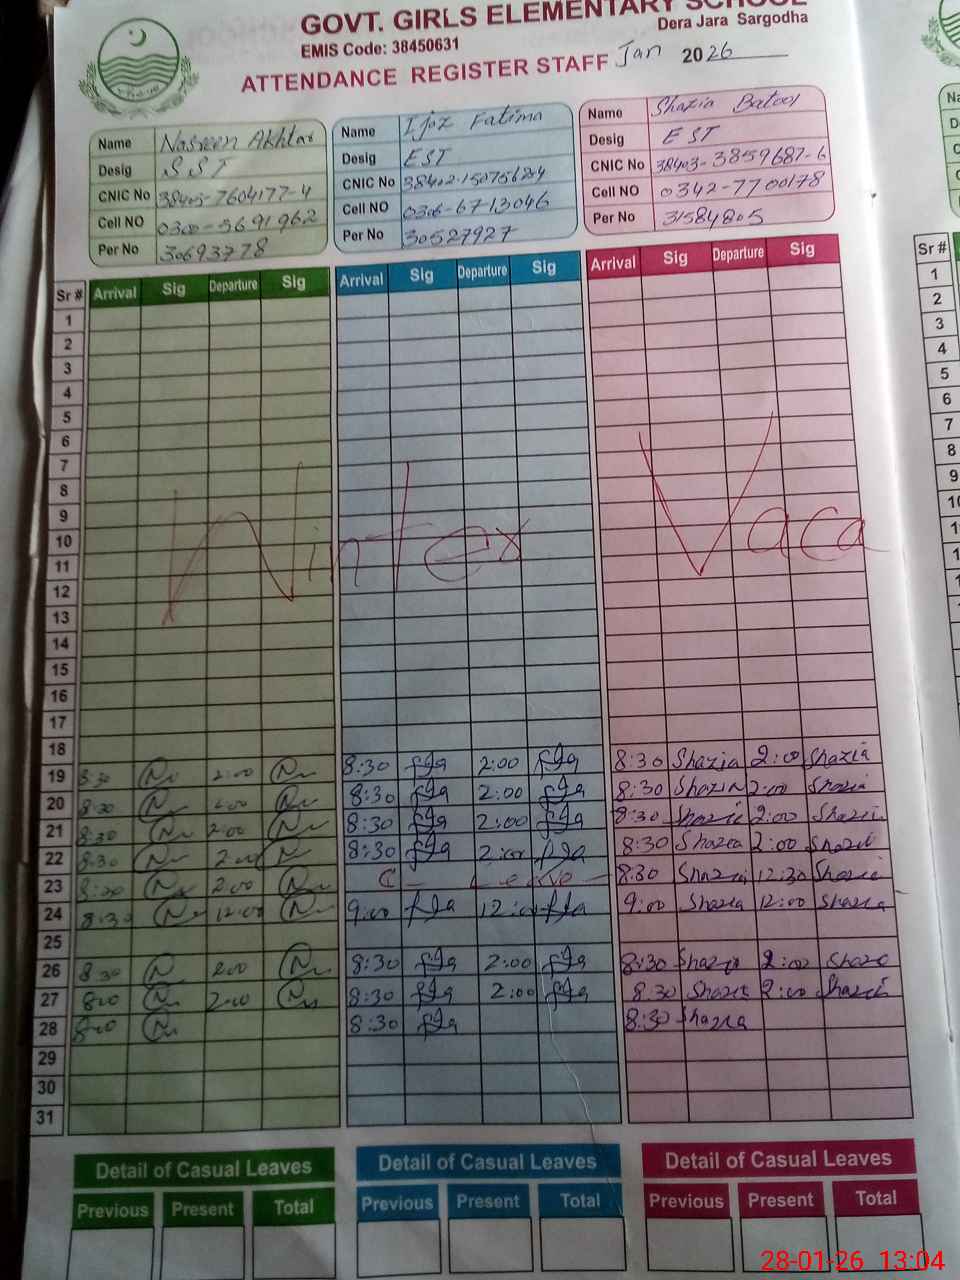 GOVT. GIRLS ELEMENTARY SCHOOL
Dera Jara Sargodha
EMIS Code: 38450631
ATTENDANCE REGISTER STAFF Jan 2026
Name Nasreen Akhtar
Desig SST
CNIC No 38403-7604177-4
Cell NO 0300-5691962
Per No 30693778
Name Ijaz Fatima
Desig EST
CNIC No
Cell NO 0306-6713046
Per No 30527927
Name Shazia Batool
Desig EST
CNIC No 38403-3859687-6
Cell NO 0342-7700178
Per No 31584805
Sr # Arrival Sig Departure Sig Arrival Sig Departure Sig Arrival Sig Departure Sig
1
2
3
4
5
6
7
8
9
10
Winter Vaca
11
12
13
14
15
16
17
18
19 8:30 2:00 8:30 2:00 8:30 Shazia 2:00 Shazia
20 8:30 2:00 8:30 2:00 8:30 Shazia 2:00 Shazia
21 8:30 2:00 8:30 2:00 8:30 Shazia 2:00 Shazia
22 8:30 2:00 8:30 2:00 8:30 Shazia 2:00 Shazia
23 8:30 2:00 C- Leave 8:30 Shazia 12:30 Shazia
24 8:30 12:00 9:00 12:00 9:00 Shazia 12:00 Shazia
25
26 8:30 2:00 8:30 2:00 8:30 Shazia 2:00 Shazia
27 2:00 8:30 2:00 8:30 Shazia 2:00 Shazia
28 8:30 8:30 Shazia
29
30
31
Detail of Casual Leaves
Previous Present Total
Detail of Casual Leaves
Previous Present Total
Detail of Casual Leaves
Previous Present Total
Sr #
1
2
3
4
5
6
7
8
9
10
28-01-26 13:04